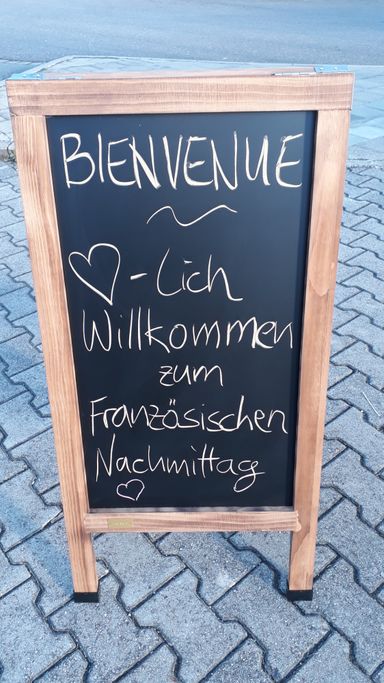 BIENVENUE
♡-Lich
Willkommen
zum
Französischen
Nachmittag
♡